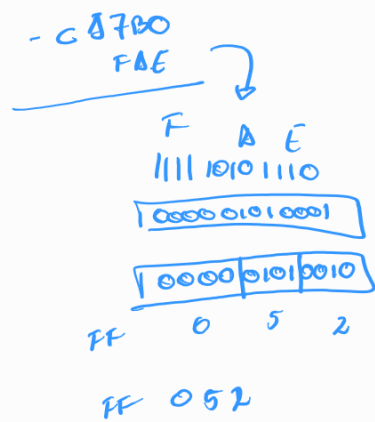 - C A7B0
FAE
F A E
1111 1010 1110
1 0000 0101 0001
1 0000 0101 0010
FF 0 5 2
FF 052